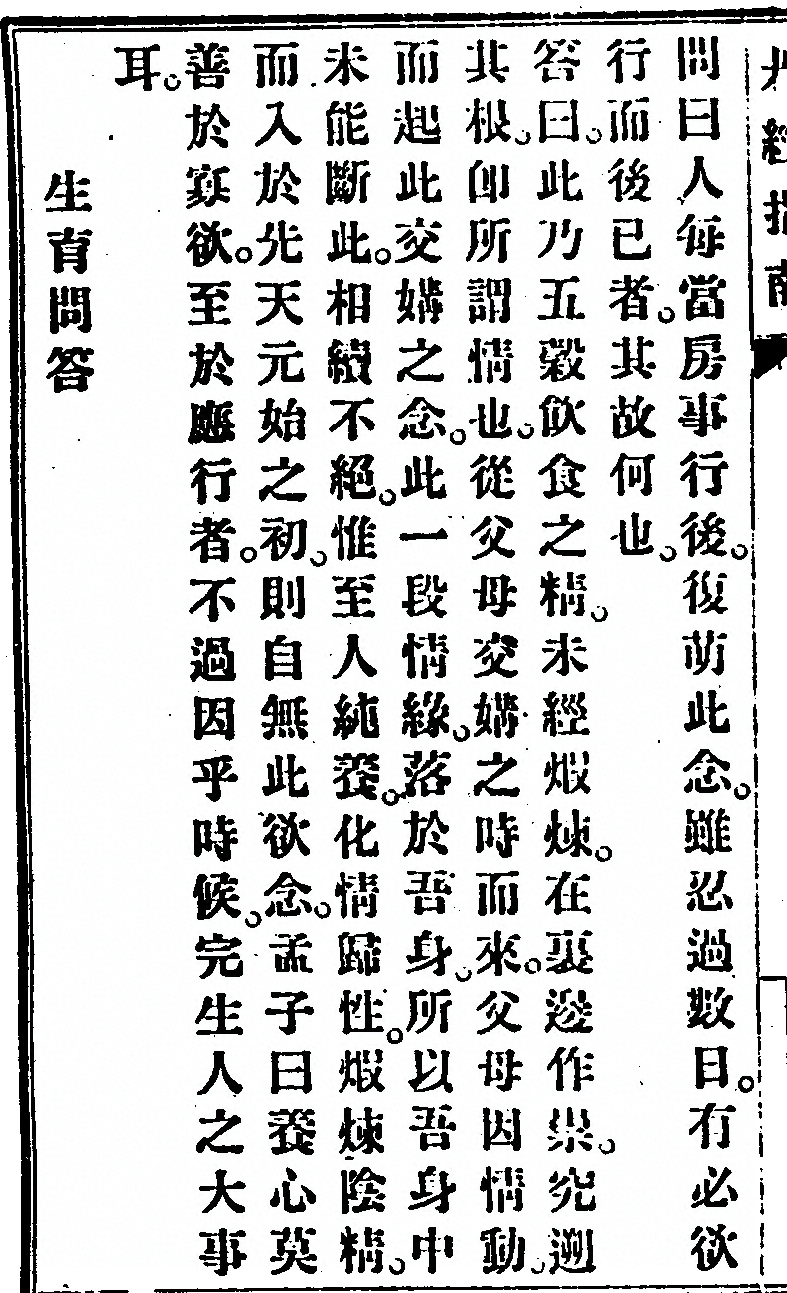 丹經指南
問曰人每當房事行後。復萌此念。雖忍過數日。有必欲
行而後已者。其故何也。
答曰。此乃五穀飲食之精。未經煅煉。在裏邊作祟。究遡
其根。卽所謂情也。從父母交媾之時而來。父母因情動。
而起此交媾之念。此一段情緣。落於吾身。所以吾身中
未能斷此。相續不絕。惟至人純養。化情歸性。煅煉陰精。
而入於先天元始之初。則自無此欲念。孟子曰養心莫
善於寡欲。至於應行者。不過因乎時候。完生人之大事
耳。
生育問答